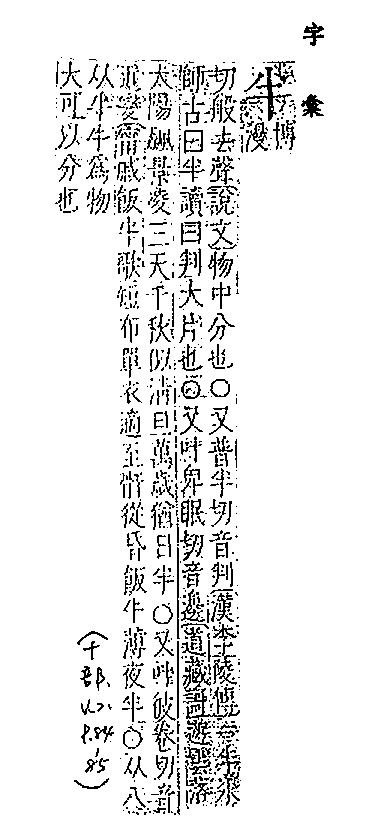 字彙
半 博漫
切般去聲說文物中分也○又普半切音判漢李陵傳一半氷
師古曰半讀曰判大片也○又叶卑眠切音邊道藏謌遊雲落
太陽飈景凌三天千秋似清旦萬歲猶日半○又叶彼卷切音
近變甯戚飯牛歌短布單衣適至骭從昏飯牛薄夜半○从八
从牛牛爲物
大可以分也
(十部, V.2, P.84, 85)